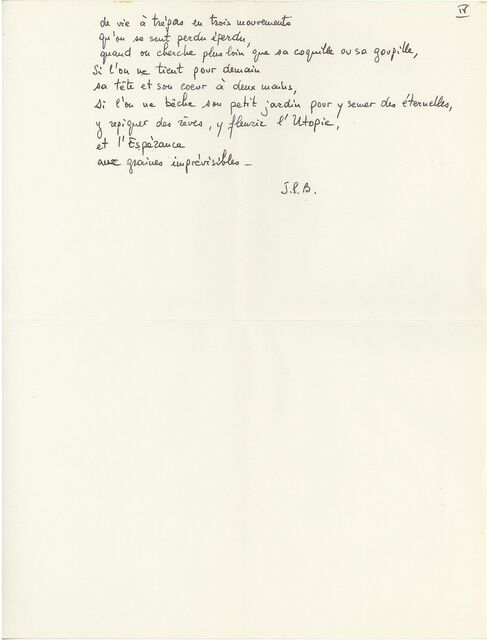 IV
de vie à trépas en trois mouvements
qu'on se sent perdu éperdu,
quand on cherche plus loin, que sa coquille ou sa goupille,
Si l'on ne tient pour demain
sa tête et son coeur à deux mains,
Si l'on ne bêche son petit jardin pour y semer des éternelles,
y repiquer des rêves, y fleurir l'Utopie,
et l'Espérance
aux graines imprévisibles_
J.P.B.